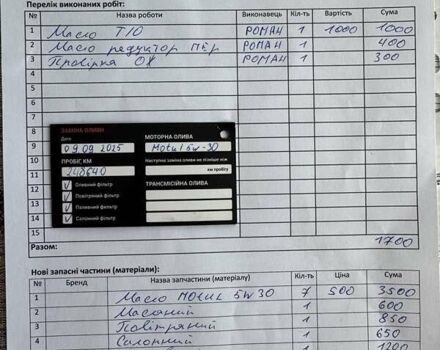 Перелік виконаних робіт:
№ Назва роботи Виконавець Кіл-ть Вартість Сума
1 Масло ТІО РОМАН 1 1000 1000
2 Масло редуктор пер РОМАН 1 400
3 Провірка ОХ РОМАН 1 300
4
5
6
7
8
9
10
11
12
13
14
15
ЗАМІНА ОЛИВИ
Дата
09.09 2025
ПРОБІГ, КМ
248640
Оливний фільтр
Повітряний фільтр
Паливний фільтр
Салонний фільтр
МОТОРНА ОЛИВА
Motul 5w-30
Наступна заміна оливи не пізніше ніж
км пробігу
ТРАНСМІСІЙНА ОЛИВА
Разом: 1700
Нові запасні частини (матеріали):
№ Бренд Назва запчастини (матеріалу) Кіл-ть Ціна Сума
1 Масло MOTUL 5W30 7 500 3500
2 Масляний 1 600
3 Повітряний 1 850
4 Салонний 1 650
1 1200